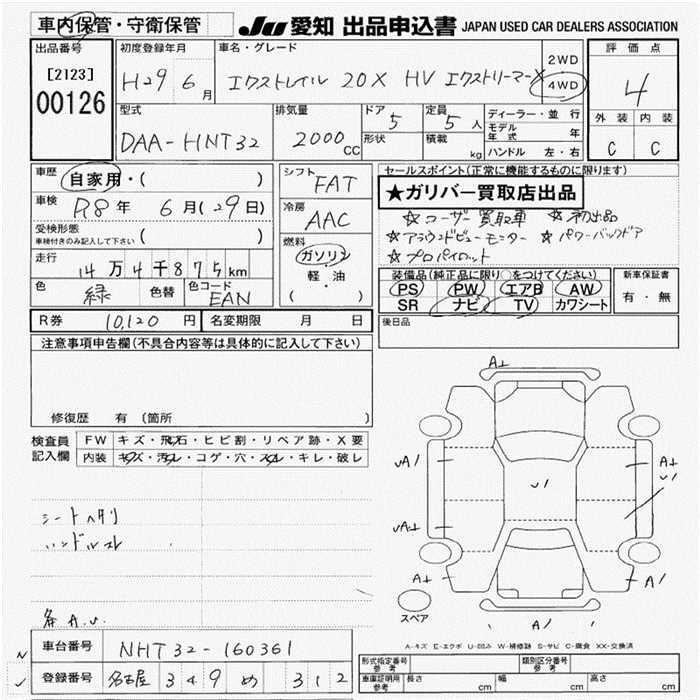 車内保管・守衛保管 JU 愛知 出品申込書 JAPAN USED CAR DEALERS ASSOCIATION
出品番号 初度登録年月 車名・グレード 評価点
[2123] 00126 H29 6月 エクストレイル 20X HV エクストリーマーX 2WD 4WD 4
型式 排気量 ドア 5 定員 5人 ディーラー・並行 外装 内装
DAA-HNT32 2000CC 形状 積載 kg モデル年式 年 C C
ハンドル 左・右
車歴 自家用・( ) シフト FAT セールスポイント(正常に機能するものに限ります)
車検 R8年 6月(29日) 冷房 AAC ★ガリバー買取店出品
☆ユーザー買取車 ☆初出品
受検形態 車検付きのみ記入して下さい ( ) 燃料 ガソリン 軽・油 ( )
☆アラウンドビューモニター ☆パワーバックドア
☆プロパイロット
走行 14万4千875km
装備品(純正品に限り○をつけてください) 新車保証書
色 緑 色替 色コード EAN
PS PW エアB AW 有・無
SR ナビ TV カワシート
R券 10,120円 名変期限 月 日 後日品
注意事項申告欄(不具合内容等は具体的に記入して下さい)
修復歴 有 (箇所
検査員記入欄 FW キズ・飛石・ヒビ割・リペア跡・X要
内装 キズ・汚レ・コゲ・穴・スレ・キレ・破レ
シートヘタリ
ハンドルスレ
各A.U.
A±
√A1 U1 A±
U1
√A±
A± A1
A1
スペア
A-キズ E-エクボ U-凹み W-補修跡 S-サビ C-腐食 XX-交換済
車台番号 NHT32-160361
登録番号 名古屋 349 め 312
型式指定番号 参考 類別区分番号 参考
車庫証明用 参考 長さ cm 幅 cm 高さ cm